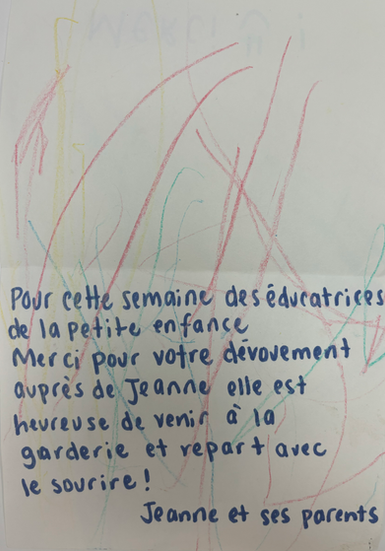 Pour cette semaine des éducatrices
de la petite enfance
Merci pour votre dévouement
auprès de Jeanne elle est
heureuse de venir à la
garderie et repart avec
le sourire !
Jeanne et ses parents